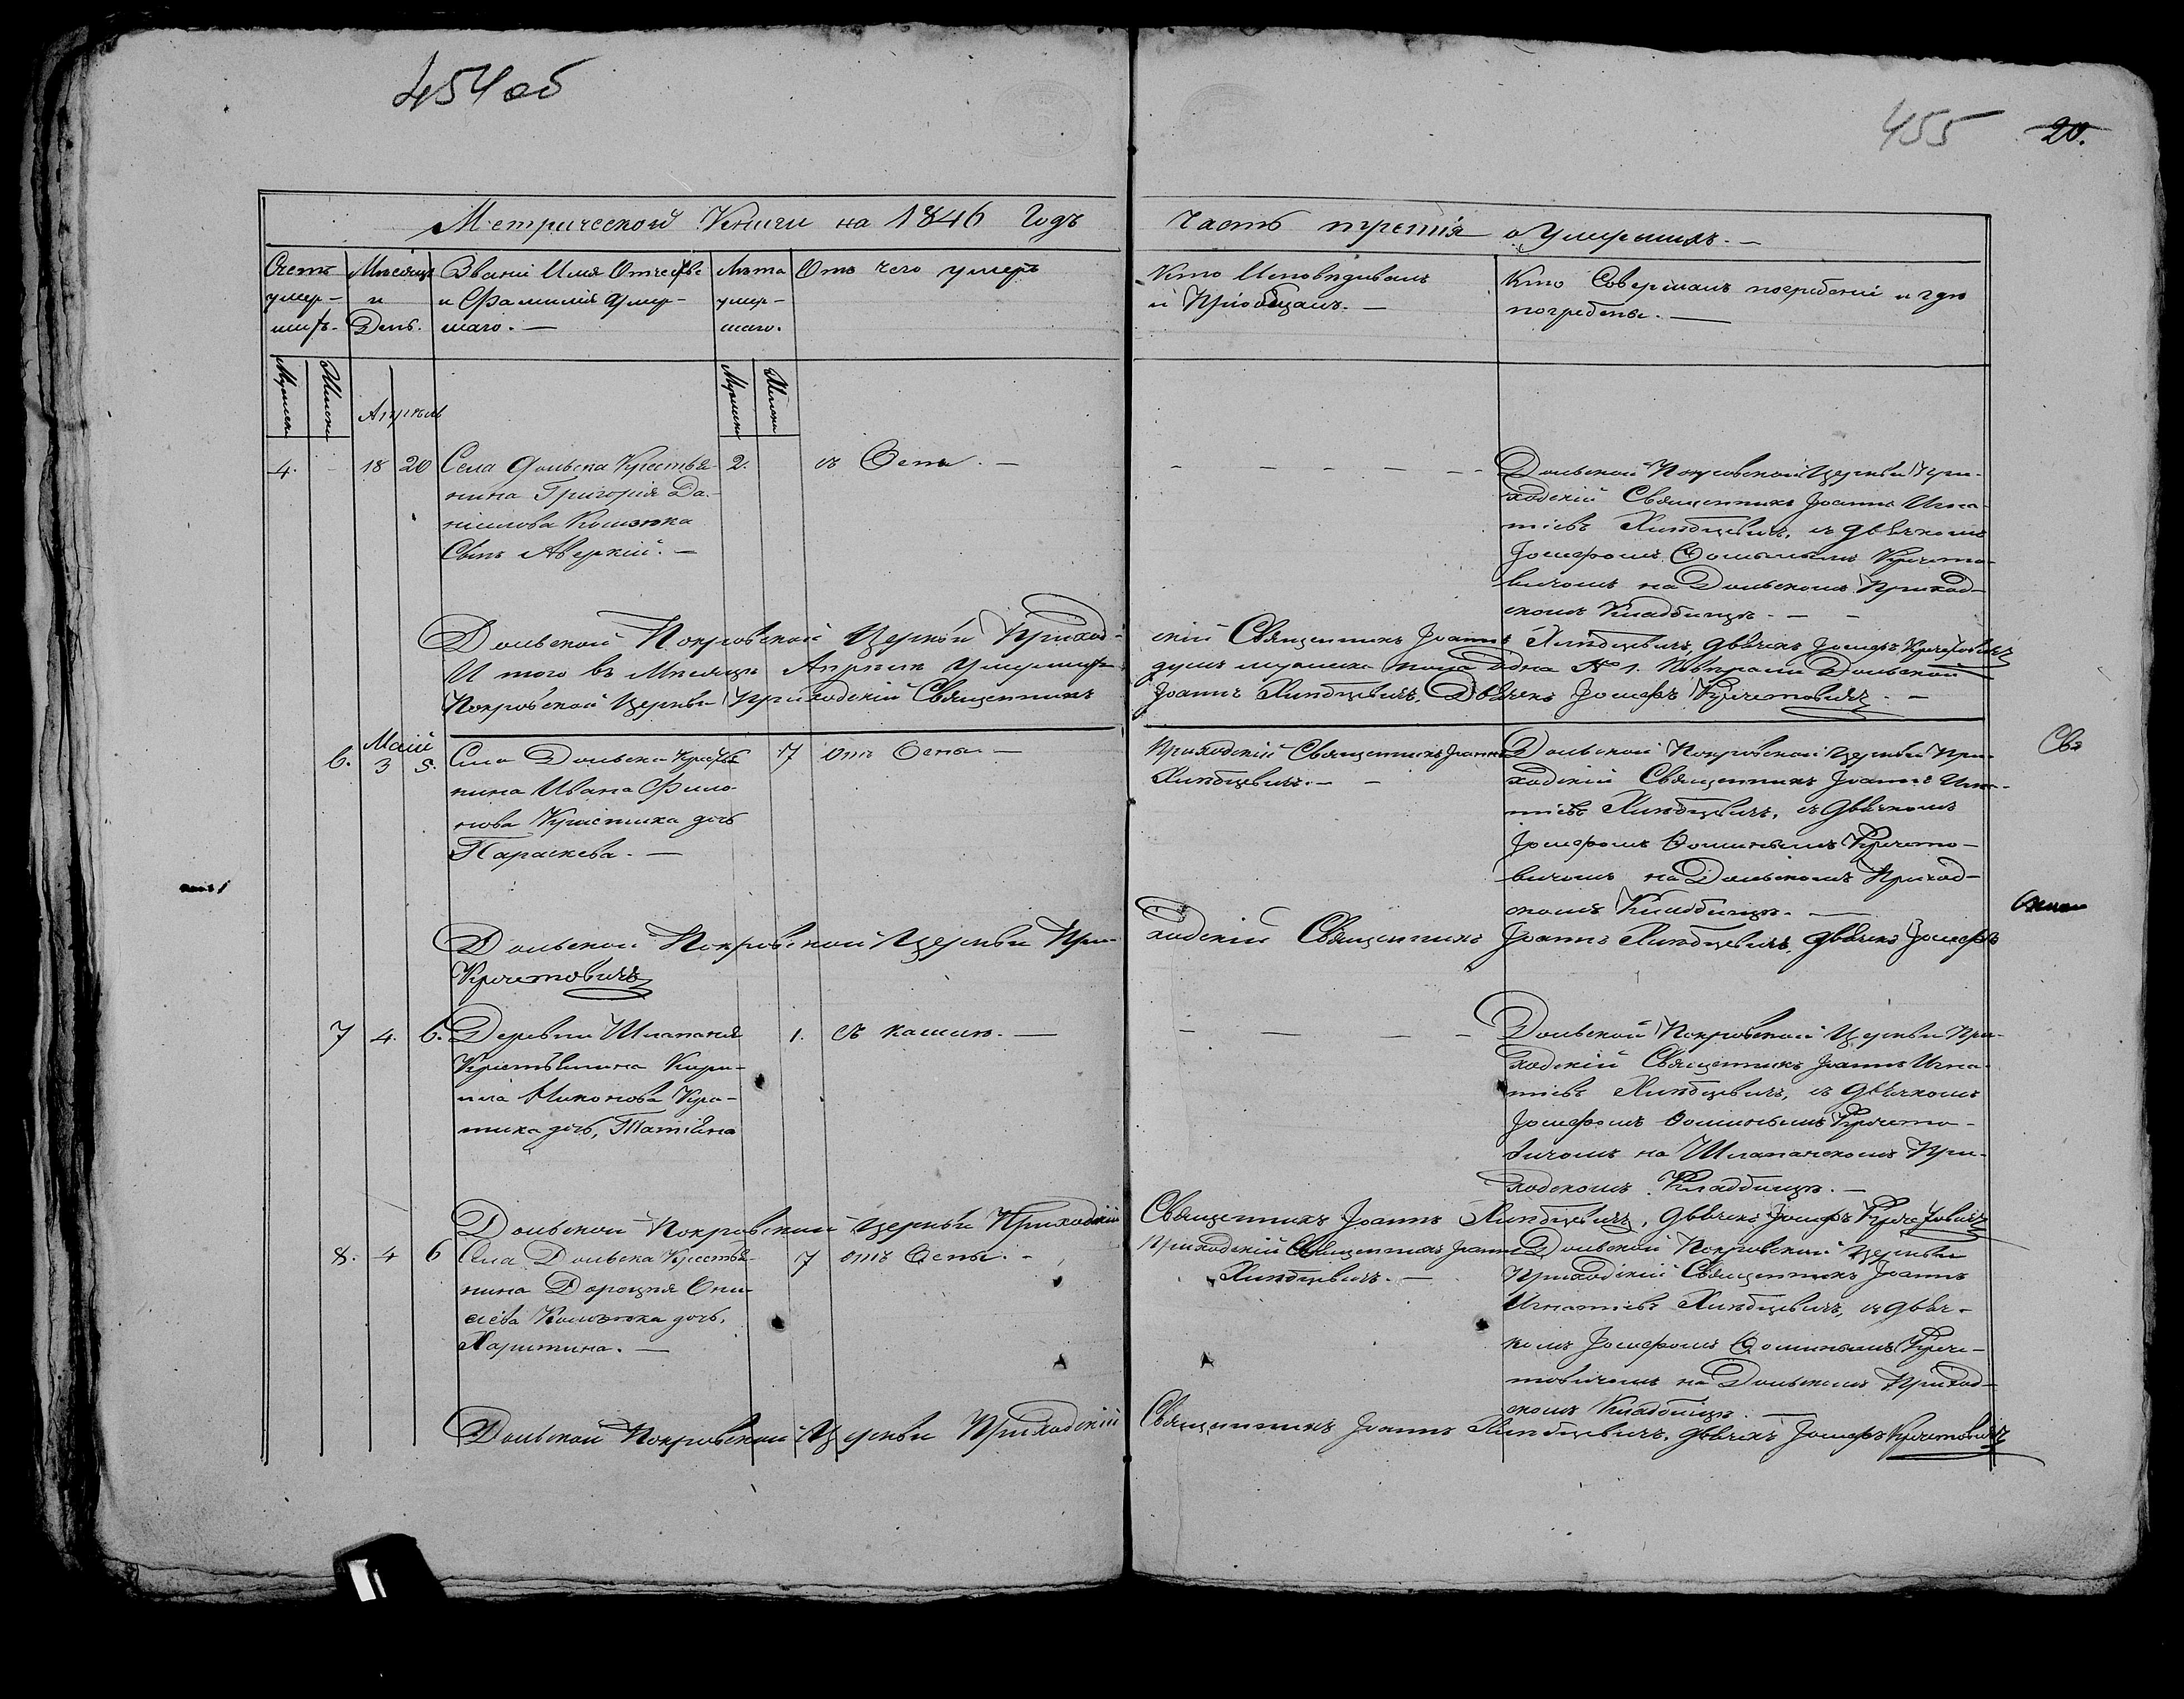 454 об
455 20.
Метрической Книги на 1846 Годъ
Часть третія о Умершихъ. —
Счетъ умер-шихъ.
Мѣсяцъ и День.
Званіе Имя Отчество и Фамилія Умер-шаго. —
Лѣта умер-шаго.
Отъ чего умеръ
Кто Исповѣдывалъ и Пріобщалъ. —
Кто Совершалъ погребеніе и гдѣ погребены. —
Мужеска
Женска
Апрѣль
Мужеска
Женска
4. 18 20 Села Дольска Крестья- 2. съ Оспы. —
нина Григорія Да-
ніилова
Сынъ Аверкій. —
Дольской Покровской Церкви При-
ходскій Священникъ Іоаннъ Игна-
тіевъ Линдцевичъ, съ дьячкомъ
Іосифомъ Ѳоминымъ Кречето-
вичомъ на Дольскомъ Приход-
скомъ Кладбищѣ. —
Дольской Покровской Церкви Приход-
скій Священникъ Іоаннъ Линдцевичъ, дьячекъ Іосифъ Кречетовичъ
И того въ Мѣсяцѣ Апрѣлѣ Умерших
душъ мужеска пола одна № 1. Дольской
Покровской Церкви Приходскій Священникъ
Іоаннъ Линдцевичъ, Дьячекъ Іосифъ Кречетовичъ. —
Маій
6. 3 5. Села Дольска Крестья 7 отъ Оспы —
нина Ивана Фило-
нова дочь
Параскева. —
Приходскій Священникъ Іоаннъ
Линдцевичъ. —
Дольской Покровской Церкви При-
ходскій Священникъ Іоаннъ Игна-
тіевъ Линдцевичъ, съ дьячкомъ
Іосифомъ Ѳоминымъ Кречето-
вичомъ на Дольскомъ Приход-
скомъ Кладбищѣ. —
Свя
Дольской Покровской Церкви При-
ходскій Священникъ Іоаннъ Линдцевичъ, дьячекъ Іосифъ
Кречетовичъ
7 4. 6. Деревни Шлапаня 1. съ кашлю. —
Крестьянина Кири-
ила Миконова Кра-
тика дочь, Татіана
Дольской Покровской Церкви При-
ходскій Священникъ Іоаннъ Игна-
тіевъ Линдцевичъ, съ дьячкомъ
Іосифомъ Ѳоминымъ Кречето-
вичомъ на Шлапанскомъ При-
ходскомъ Кладбищѣ. —
Дольской Покровской Церкви Приходскій
Священникъ Іоаннъ Линдцевичъ, дьячекъ Іосифъ Кречетовичъ
8. 4 6 Села Дольска Крестья- 7 отъ Оспы. —
нина Дороѳея Они-
сіева дочь,
Харитина. —
Приходскій Священникъ Іоаннъ
Линдцевичъ. —
Дольской Покровской Церкви
Приходскій Священникъ Іоаннъ
Игнатіевъ Линдцевичъ, съ дьяч-
комъ Іосифомъ Ѳоминымъ Крече-
товичомъ на Дольскомъ Приход-
скомъ Кладбищѣ. —
Дольской Покровской Церкви Приходскій
Священникъ Іоаннъ Линдцевичъ, дьячекъ Іосифъ Кречетовичъ